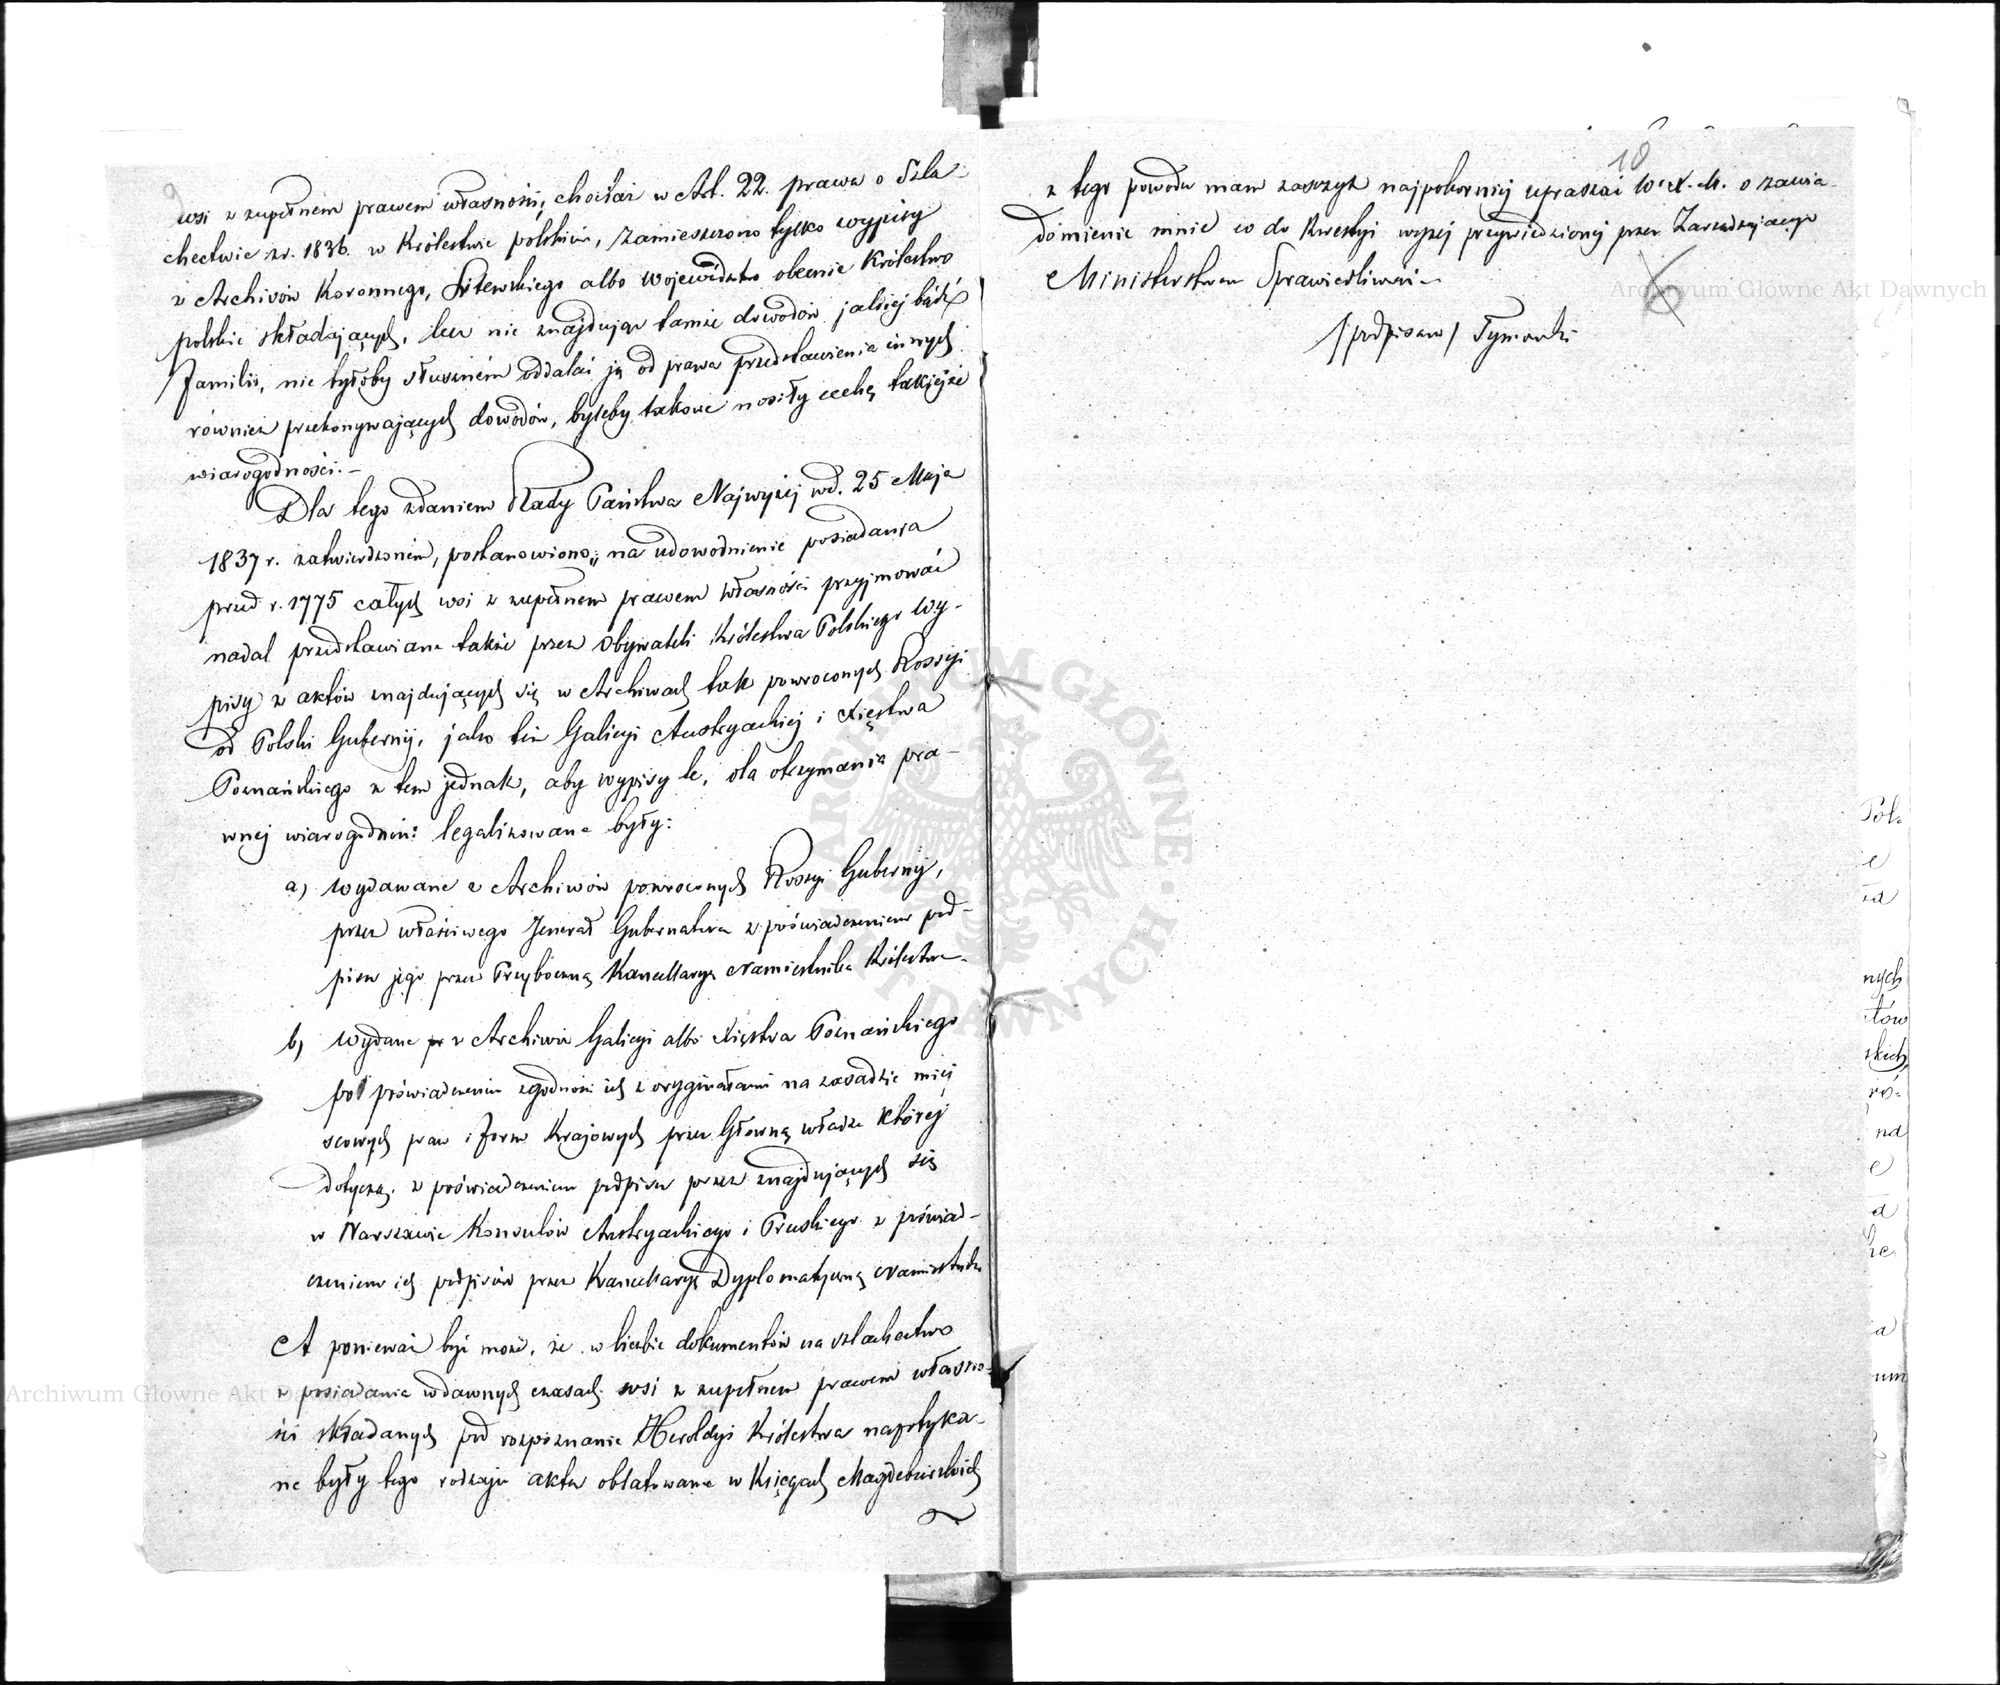 9
wsi z zupełnem prawem własności, chociaż w Art. 22. prawa o Szla-
chectwie z r. 1836. w Królestwie polskim, zamieszczono tylko wypisy
z Archivów Koronnego, Litewskiego albo Województw obecnie Królestwo
polskie składających, lecz nie znajdując tamże dowodów jakiej bądź
Familii, nie byłoby słuszném oddalać ją od prawa przedstawienia innych
również przekonywających dowodów, byleby takowe nosiły cechę takiejże
wiarogodności.-
Dla tego zdaniem Rady Państwa Najwyżej wd. 25 Maja
1837 r. zatwierdzoném, postanowiono „na udowodnienie posiadania
przed r. 1775 całych wsi z zupełnem prawem własności przyjmować
nadal przedstawiane także przez Obywateli Królestwa Polskiego wy-
pisy z aktów znajdujących się w Archiwach tak powróconych Rossyi
od Polski Gubernij, jako też Galicyi Austryackiej i Xięstwa
Poznańskiego z tem jednak, aby wypisy te, dla otrzymania pra-
wnej wiarogodności legalizowane były:
a) wydawane z Archiwów powróconych Rossyi Gubernij,
przez właściwego Jenerał Gubernatora z poświadczeniem pod-
pisu jego przez Przyboczną Kancellaryę Namiestnika Królestwa.
b) wydane z Archiwów Galicyi albo Xięstwa Poznańskiego
po poświadczeniu zgodności ich z oryginałami na zasadzie miej
scowych praw i form Krajowych przez Główną władzę której
dotyczą, z poświadczeniem podpisu przez znajdujących się
w Warszawie Konsulów Austryackiego i Pruskiego z poświad-
czeniem ich podpisów przez Kancellaryę Dyplomatyczną Namiestnika
A ponieważ być może, że w liczbie dokumentów na szlachectwo
z posiadania w dawnych czasach wsi z zupełnem prawem własno-
ści składanych pod rozpoznanie Heroldyi Królestwa napotyka-
ne były tego rodzaju akta oblatowane w Księgach Magdeburskich
10
z tego powodu mam zaszczyt najpokorniej upraszać W. X. M. o zawia-
domienie mnie co do Kwestyi wyżej przywiedzionej przez Zarządzającego
Ministerstwem Sprawiedliwości-
/podpisano/ Tymowski
Pol-
e
nych
tów
skich,
ró-
na
e
a
ze.
a
um
Archiwum Główne Akt Dawnych
Archiwum Główne Akt Dawnych
ARCHIWUM GŁÓWNE AKT DAWNYCH